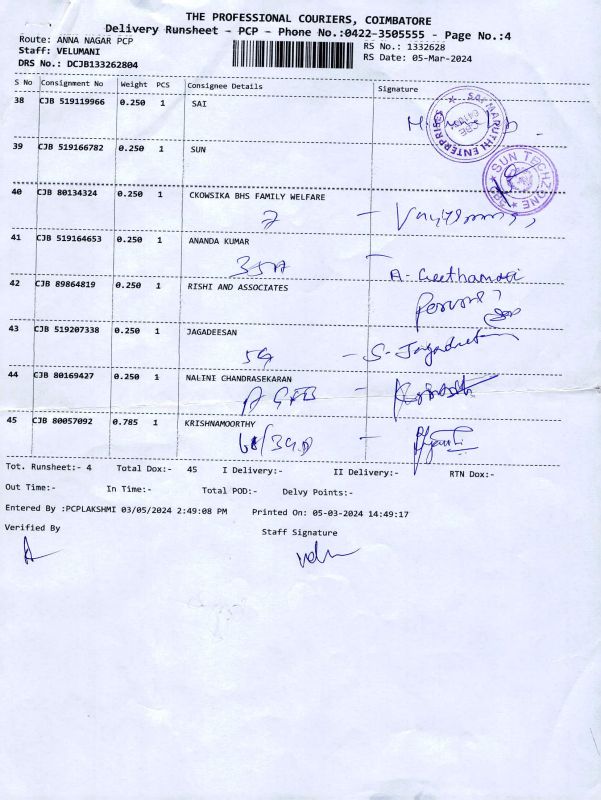 THE PROFESSIONAL COURIERS, COIMBATORE
Delivery Runsheet - PCP - Phone No.:0422-3505555 - Page No.:4
Route: ANNA NAGAR PCP
RS No.: 1332628
Staff: VELUMANI
RS Date: 05-Mar-2024
DRS No.: DCJB133262804
S No Consignment No Weight PCS Consignee Details Signature
38 CJB 519119966 0.250 1 SAI
SAI MARUTHI ENTERPRISES
39 CJB 519166782 0.250 1 SUN
SUN TECHZONE
40 CJB 80134324 0.250 1 CKOWSIKA BHS FAMILY WELFARE
2 -
41 CJB 519164653 0.250 1 ANANDA KUMAR
35A - A. Geethamani
42 CJB 89864819 0.250 1 RISHI AND ASSOCIATES
43 CJB 519207338 0.250 1 JAGADEESAN
5G - S. Jagadeesan
44 CJB 80169427 0.250 1 NALINI CHANDRASEKARAN
45 CJB 80057092 0.785 1 KRISHNAMOORTHY
Tot. Runsheet:- 4 Total Dox:- 45 I Delivery:- II Delivery:- RTN Dox:-
Out Time:- In Time:- Total POD:- Delvy Points:-
Entered By :PCPLAKSHMI 03/05/2024 2:49:08 PM Printed On: 05-03-2024 14:49:17
Verified By Staff Signature